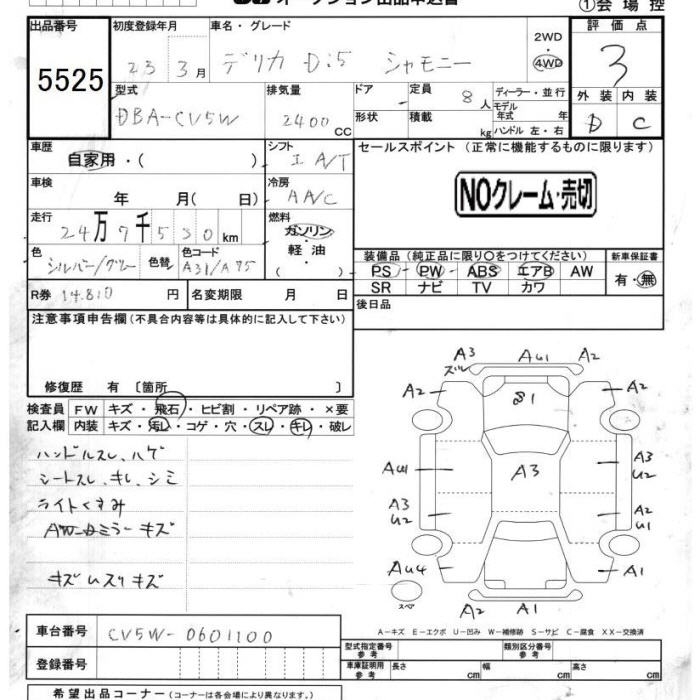 オークション出品申込書
①会場控
出品番号
5525
初度登録年月
23 3月
車名・グレード
デリカ D:5 シャモニー
2WD
4WD
評価点
3
型式
DBA-CV5W
排気量
2400 cc
ドア
定員 8人
ディーラー・並行
モデル
年式 年
外装 内装
D C
形状
積載 kg
ハンドル 左・右
車歴
自家用・( )
シフト
I A/T
セールスポイント (正常に機能するものに限ります)
車検
年 月( 日)
冷房
AAC
NOクレーム・売切
走行
24万7千530km
燃料
ガソリン
軽・油
( )
色
シルバー/グレー
色替
色コード
A31/A75
装備品 (純正品に限り○をつけてください)
新車保証書
PS PW ABS エアB AW
SR ナビ TV カワ
有・無
R券 14.810 円
名変期限 月 日
後日品
注意事項申告欄(不具合内容等は具体的に記入して下さい)
修復歴 有 〔箇所 〕
検査員
記入欄
FW キズ・飛石・ヒビ割・リペア跡・×要
内装 キズ・汚レ・コゲ・穴・スレ・キレ・破レ
ハンドルスレ、ハゲ
シートスレ、キレ、シミ
ライトくすみ
キズムスリキズ
A3 ズレ AU1 A2
A2 A2
S1
AU1 A3 A3 U2
A3 U2 A2 U1
AU4 A1
スペア
A2 A1
A-キズ E-エクボ U-凹み W-補修跡 S-サビ C-腐食 XX-交換済
車台番号
CV5W-0601100
登録番号
型式指定番号
参考
類別区分番号
参考
車庫証明用
参考
長さ cm 幅 cm 高さ cm
希望出品コーナー (コーナーは各会場により異なります。)